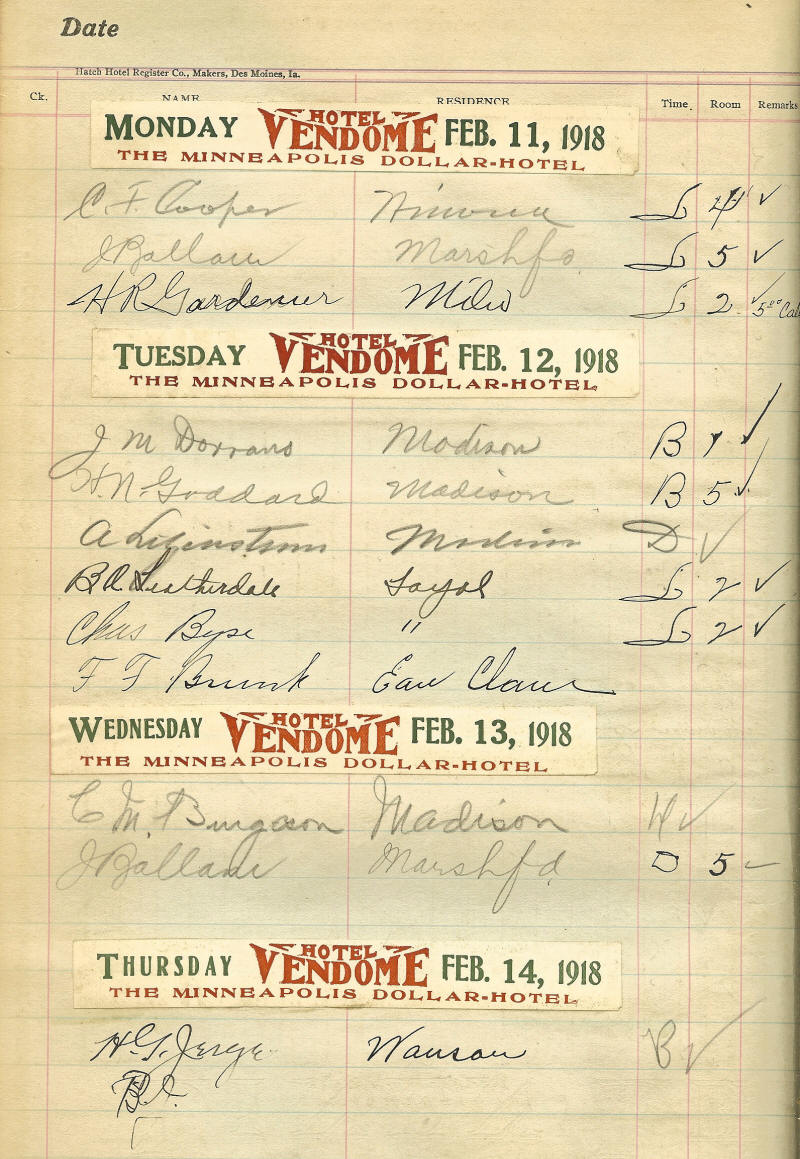 Date
Hatch Hotel Register Co., Makers, Des Moines, Ia.
Ck. NAME RESIDENCE Time. Room Remarks
MONDAY HOTEL VENDOME FEB. 11, 1918
THE MINNEAPOLIS DOLLAR-HOTEL
C. F. Cooper Winona L 4 ✓
J Ballam Marshfd L 5 ✓
H R Gardenier Milw L 2 ✓ 5 00
TUESDAY HOTEL VENDOME FEB. 12, 1918
THE MINNEAPOLIS DOLLAR-HOTEL
J M Dorrans Madison B 1 ✓
H. N. Goddard Madison B 5 ✓
A Madison D ✓
B A Leatherdale Loyal L 2 ✓
Chas Byse " L 2 ✓
F F Brunk Eau Claire
WEDNESDAY HOTEL VENDOME FEB. 13, 1918
THE MINNEAPOLIS DOLLAR-HOTEL
C M. Madison 4 ✓
J Ballam Marshfd D 5
THURSDAY HOTEL VENDOME FEB. 14, 1918
THE MINNEAPOLIS DOLLAR-HOTEL
H. G. Jerge Wausau B ✓